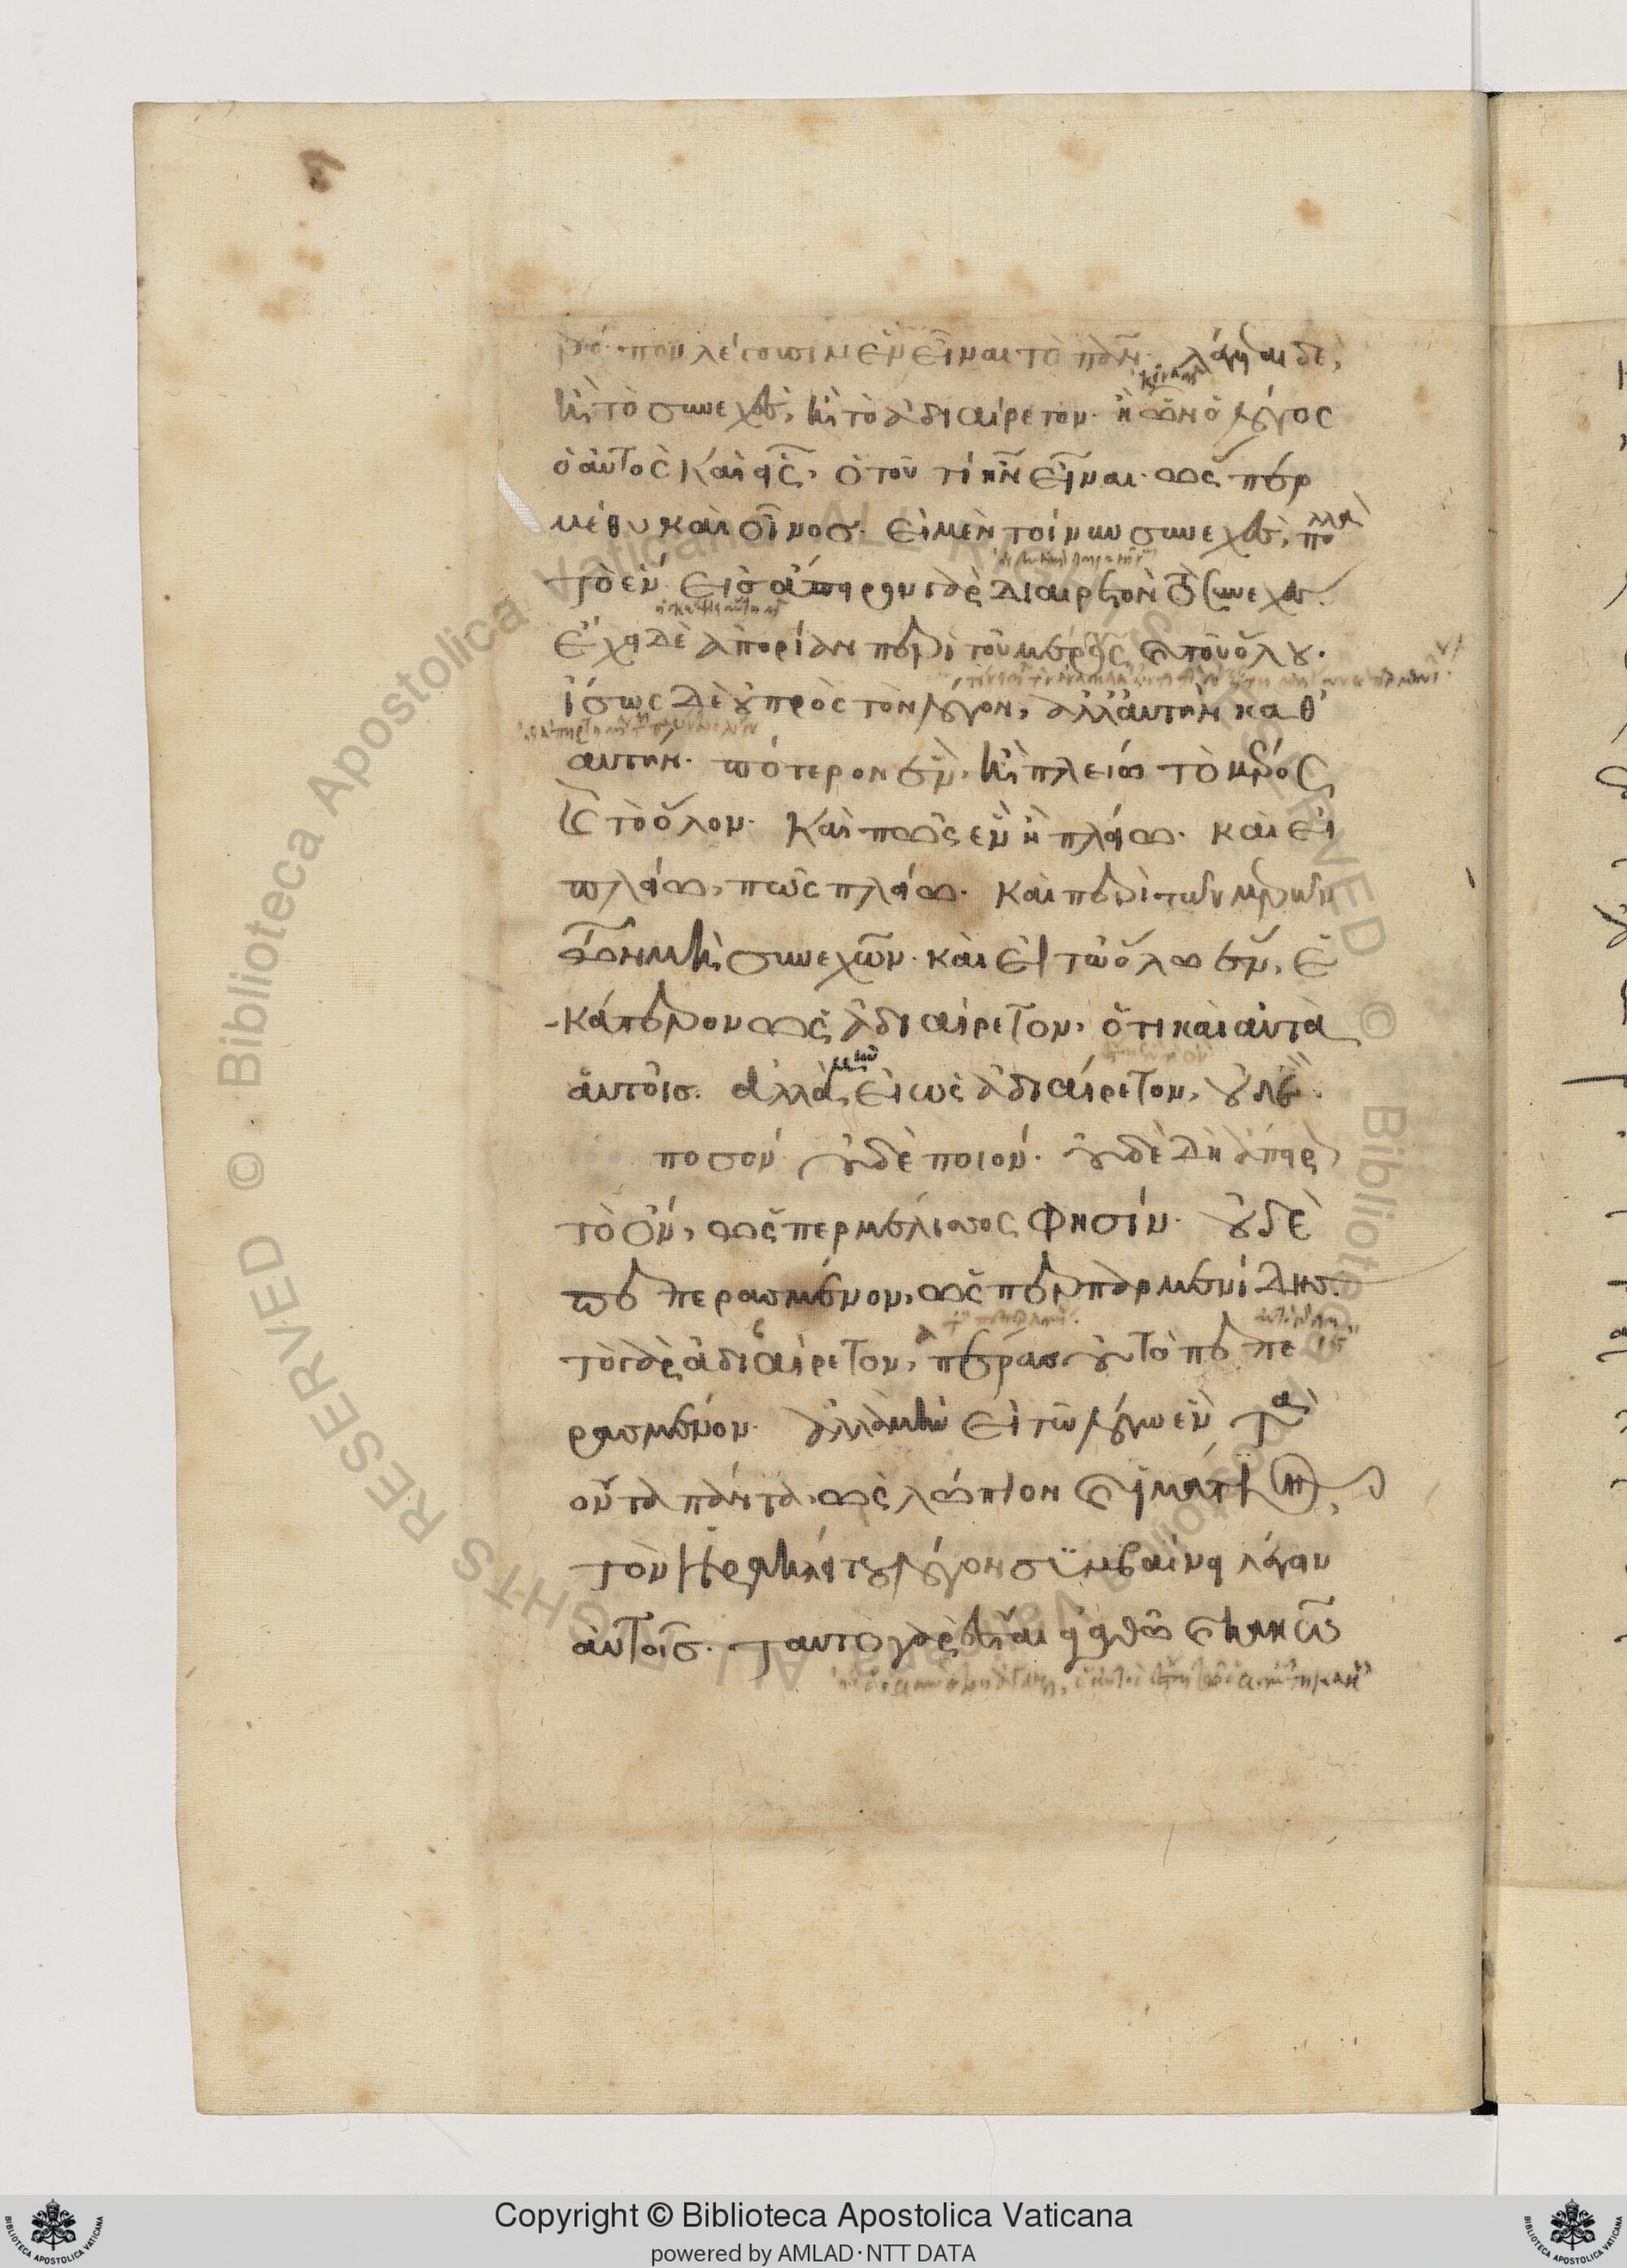 τρόπον λέγουσιν ἓν εἶναι τὸ πᾶν. λέγεται δὲ,
ἢ τὸ συνεχὲς, ἢ τὸ ἀδιαίρετον. ἢ ὧν ὁ λόγος
ὁ αὐτὸς καὶ εἷς, ὁ τοῦ τί ἦν εἶναι. ὥσπερ
μέθυ καὶ οἶνος. εἰ μὲν τοίνυν συνεχὲς, πολλὰ
τὸ ἕν. εἰς ἄπειρον γὰρ διαιρετὸν τὸ συνεχές.
ἔχει δὲ ἀπορίαν περὶ τοῦ μέρους καὶ τοῦ ὅλου.
ἴσως δὲ οὐ πρὸς τὸν λόγον, ἀλλ' αὐτὴν καθ'
αυτήν. πότερον ἓν, ἢ πλείω τὸ μέρος
καὶ τὸ ὅλον. καὶ πῶς ἓν ἢ πλείω. καὶ εἰ
πλείω, πῶς πλείω. καὶ περὶ τῶν μερῶν
τῶν μὴ συνεχῶν. καὶ εἰ τῷ ὅλῳ ἓν, ἑ
κάτερον ὡς ἀδιαίρετον, ὅτι καὶ αὐτὰ
αὑτοῖς. ἀλλὰ μὴν εἰ ὡς ἀδιαίρετον, οὐθὲν
ποσὸν οὐδὲ ποιόν. οὐδὲ δὴ ἄπειρον
τὸ ὂν, ὥσπερ μέλισσος φησίν. οὐδὲ
πεπερασμένον, ὥσπερ παρμενίδης.
τὸ γὰρ πέρας ἀδιαίρετον, οὐ τὸ πεπε
ρασμένον. ἀλλὰ μὴν εἰ τῷ λόγῳ ἓν τὰ
ὄντα πάντα ὡς λώπιον καὶ ἱμάτιον,
τὸν Ἡρακλείτου λόγον συμβαίνει λέγειν
αὐτοῖς. ταυτὸ γὰρ ἔσται ἀγαθῷ καὶ κακῷ
© Biblioteca Apostolica Vaticana ALL RIGHTS RESERVED
Copyright © Biblioteca Apostolica Vaticana
powered by AMLAD·NTT DATA